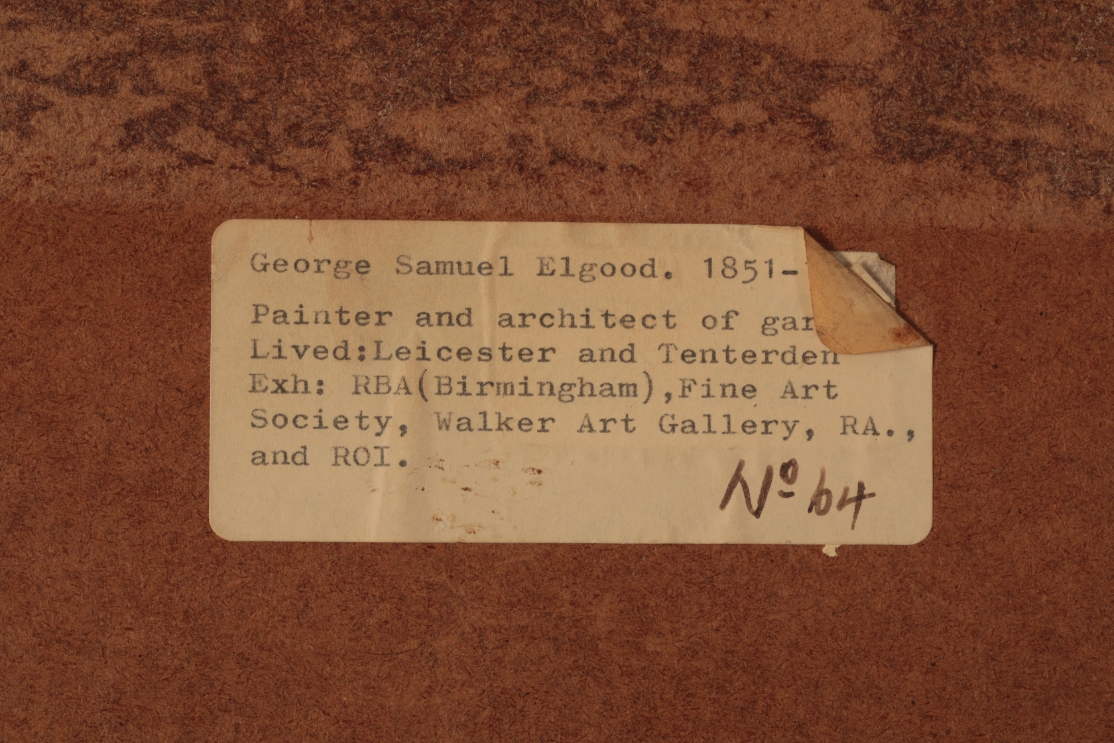 George Samuel Elgood. 1851-
Painter and architect of
Lived:Leicester and Tenterden
Exh: RBA(Birmingham),Fine Art
Society, Walker Art Gallery, RA.,
and ROI.
Nº 64